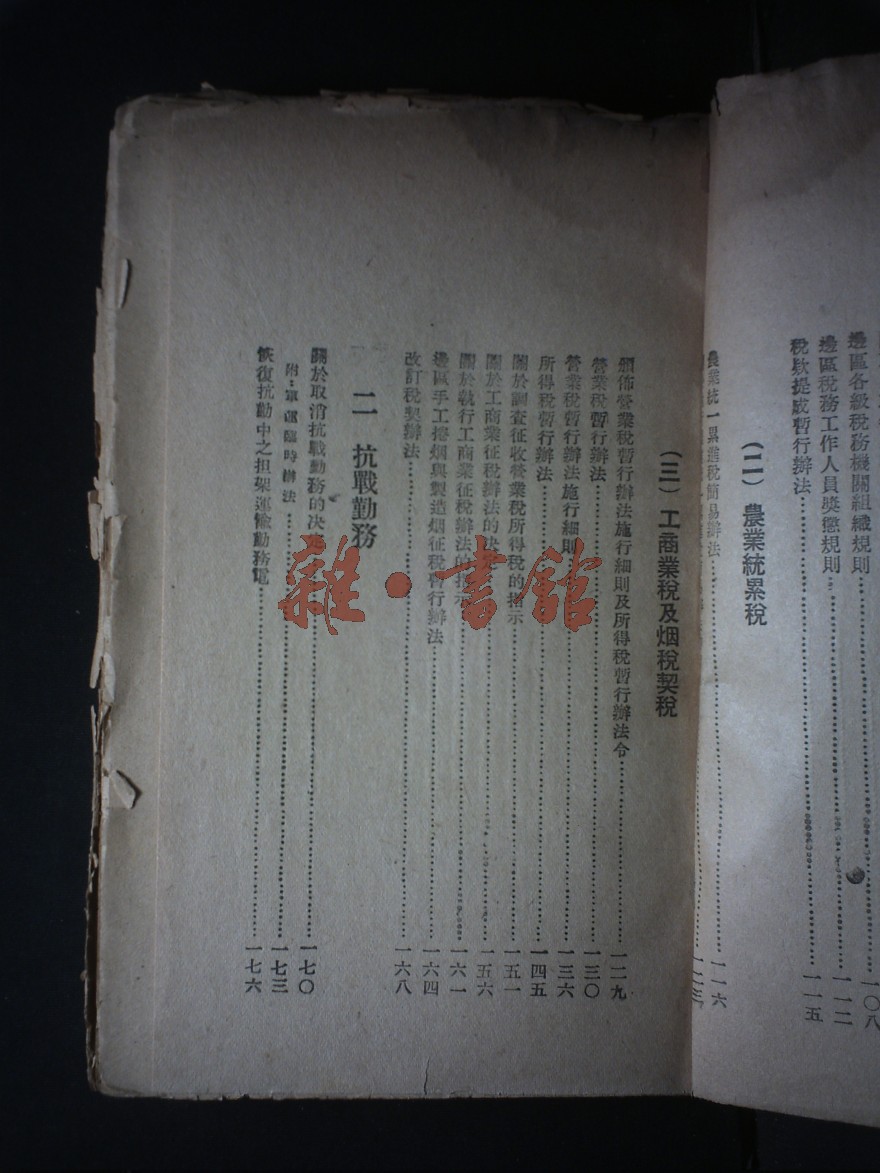 邊區各級稅務機關組織規則……一〇八
邊區稅務工作人員獎懲規則……一一二
稅欵提成暫行辦法……一一五
（二）農業統累稅
農業統一累進稅簡易辦法……一一六
一二三
（三）工商業稅及烟稅契稅
頒佈營業稅暫行辦法施行細則及所得稅暫行辦法令……一二九
營業稅暫行辦法……一三〇
營業稅暫行辦法施行細則……一三六
所得稅暫行辦法……一四五
關於調查征收營業稅所得稅的指示……一五一
關於工商業征稅辦法的决定……一五六
關於執行工商業征稅辦法的指示……一六一
邊區手工捲烟與製造烟征稅暫行辦法……一六四
改訂稅契辦法……一六八
二　抗戰勤務
關於取消抗戰勤務的决定……一七〇
附：軍運臨時辦法……一七三
恢復抗勤中之担架運輸勤務電……一七六
雜·書館